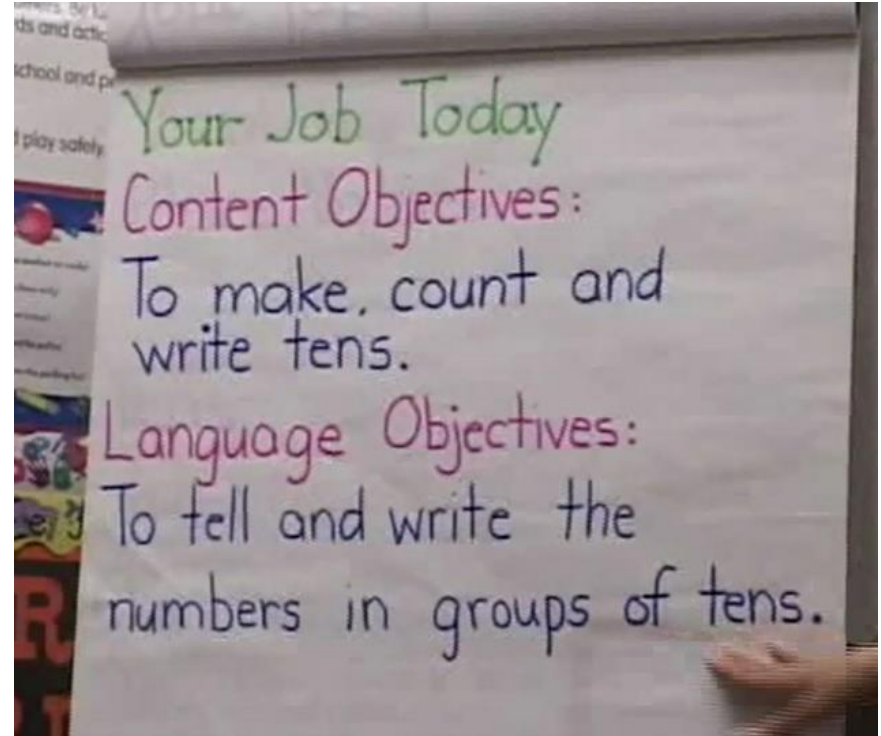 ds and actio
school and pe
play safely.
Your Job Today
Content Objectives:
To make, count and
write tens.
Language Objectives:
To tell and write the
numbers in groups of tens.
R